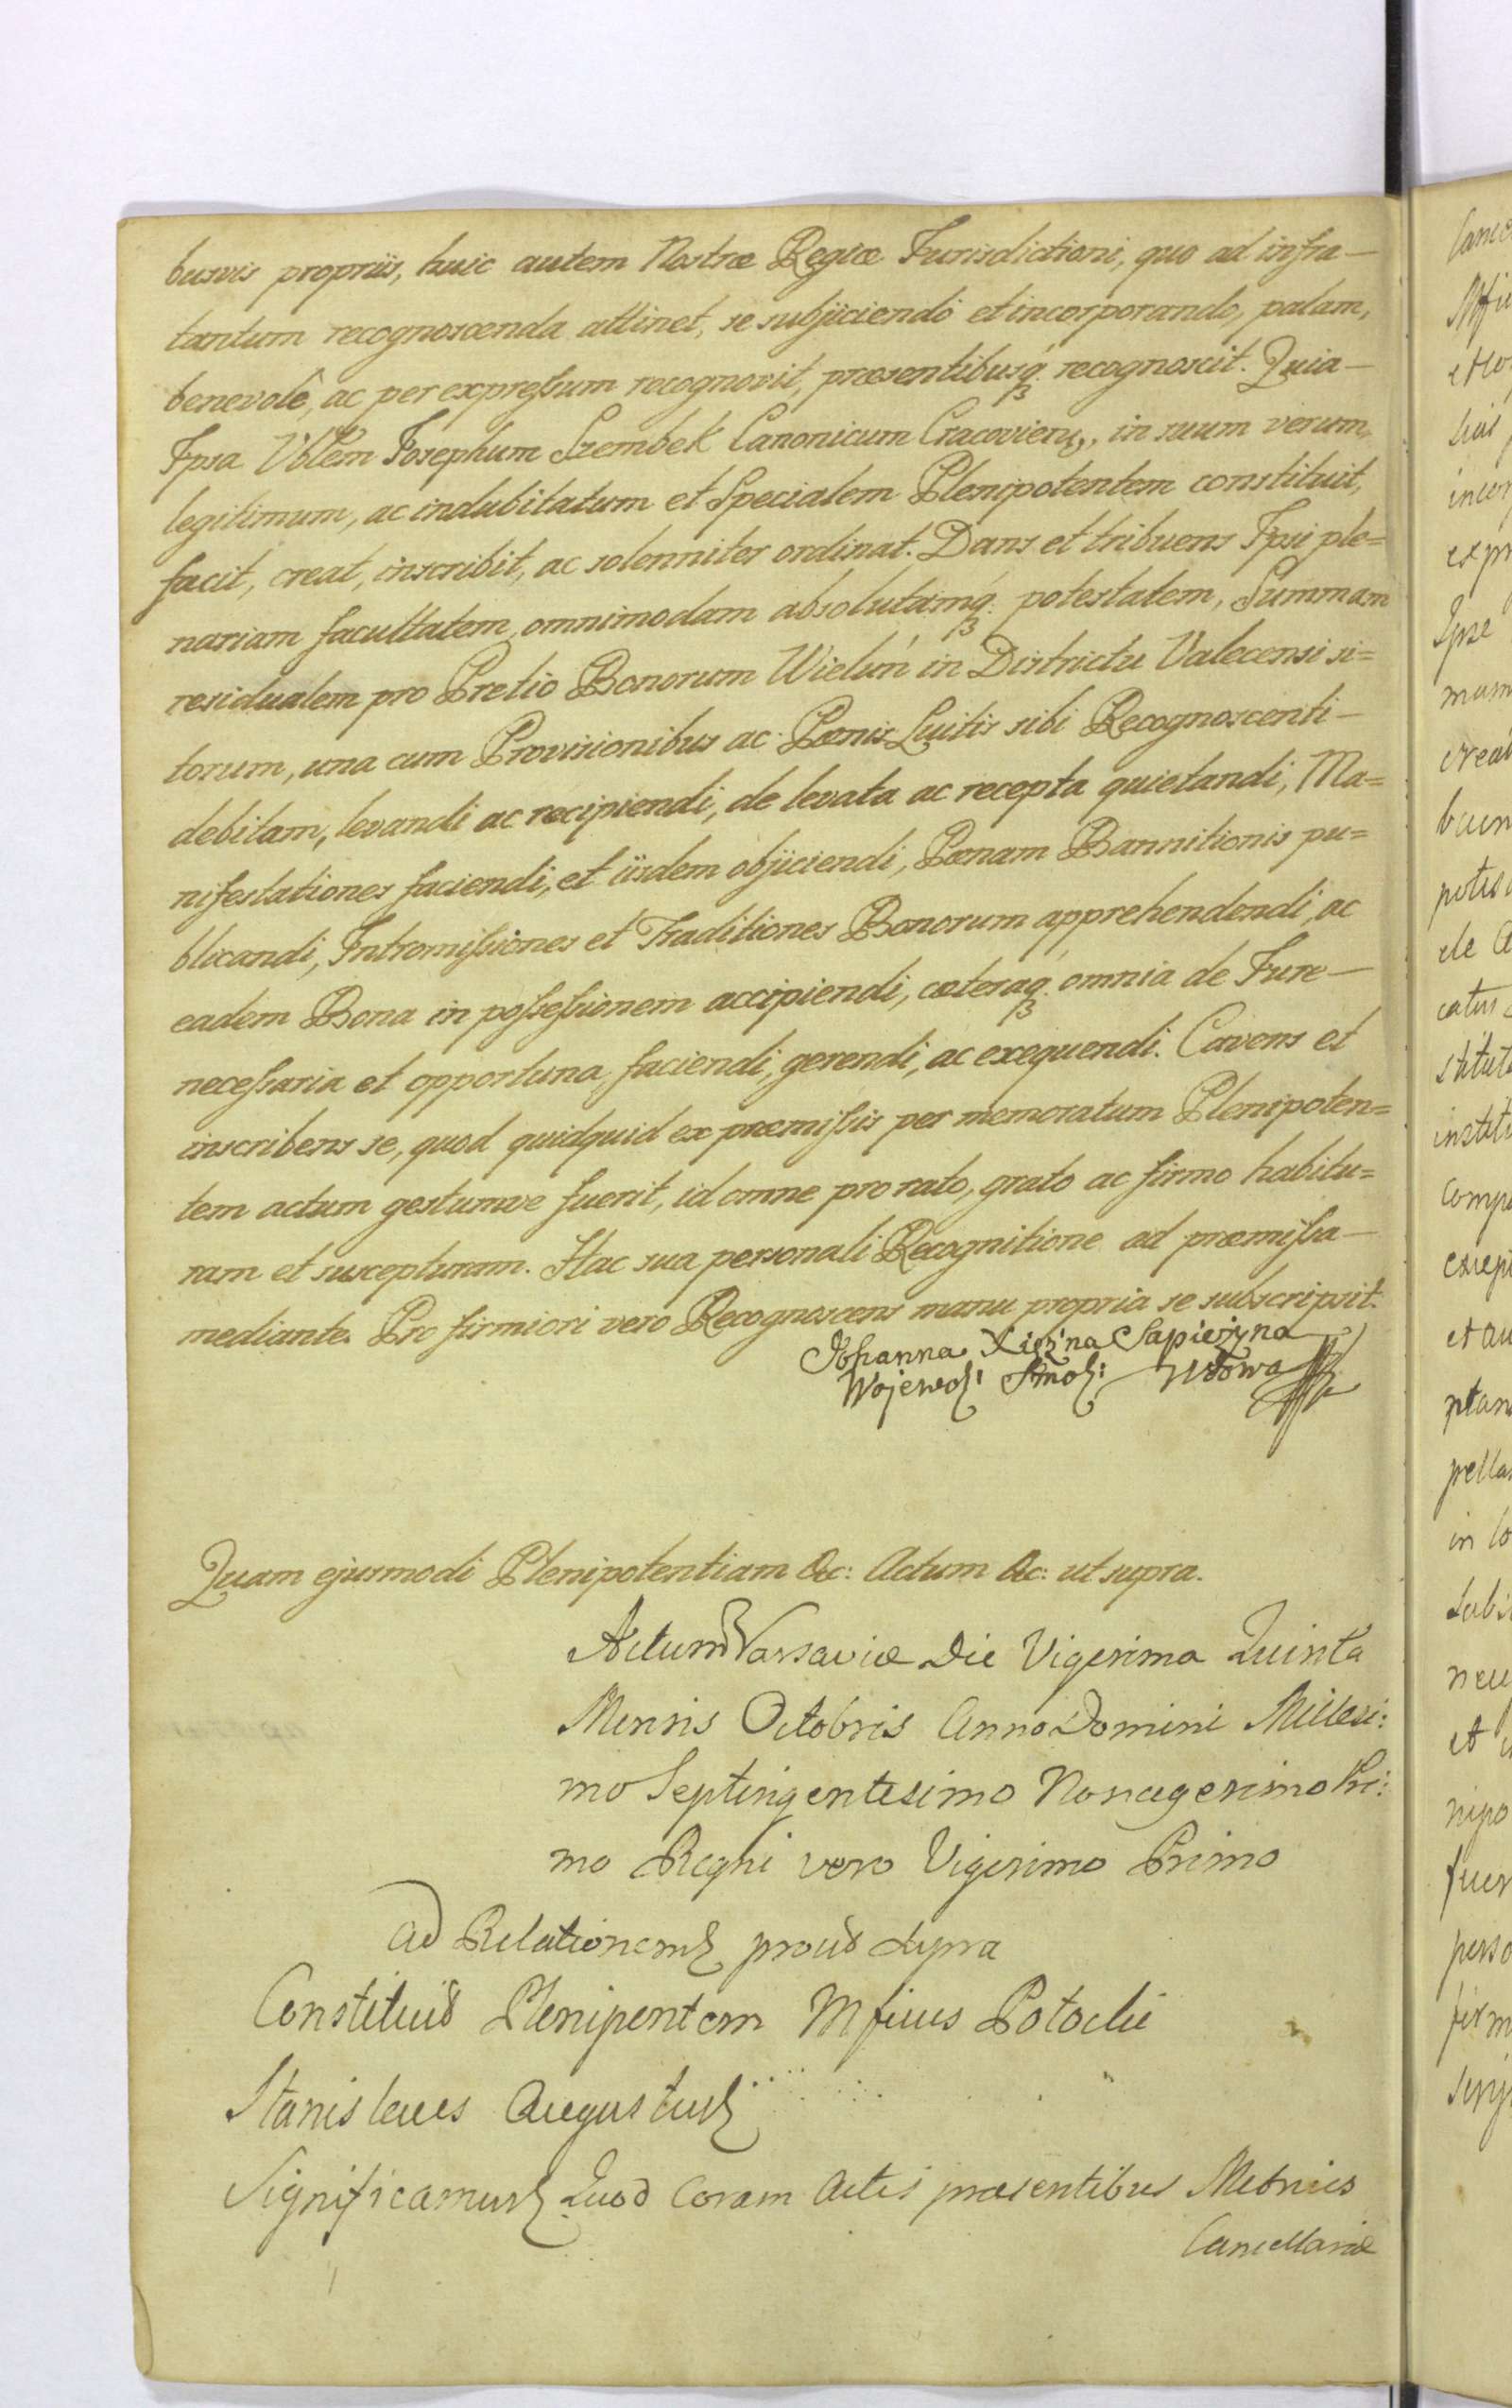 busvis propriis, huic autem Nostræ Regiæ Jurisdictioni, quo ad infra—
tantum recognoscenda attinet, se subjiciendo et incorporando, palam,
benevolê, ac per expreſsum recognovit, præsentibusq́ꝫ recognoscit. Quia—
Ipsa Vblem Josephum Szembek Canonicum Cracovien, in suum verum,
legitimum, ac indubitatum et Specialem Plenipotentem constituit,
facit, creat, inscribit, ac solenniter ordinat. Dans et tribuens Ipsi ple=
nariam facultatem, omnimodam absolutamq́ꝫ potestatem, Summam
residualem pro Pretio Bonorum Wieluń in Districtu Valecensi si=
torum, una cum Provisionibus ac Pœnis Luitis sibi Recognoscenti—
debitam, levandi ac recipiendi, de levata ac recepta quietandi, Ma=
nifestationes faciendi, et iisdem objiciendi, Pœnam Bannitionis pu=
blicandi, Intromiſsiones et Traditiones Bonorum apprehendendi, ac
eadem Bona in poſseſsionem accipiendi, cæteraq́ꝫ omnia de Jure—
neceſsaria et opportuna, faciendi, gerendi, ac exequendi. Cavens et
inscribens se, quod quidquid ex præmiſsis per memoratum Plenipoten=
tem actum gestumve fuerit, id omne pro rato, grato ac firmo habitu=
ram et suscepturam. Hac sua personali Recognitione ad præmiſsa—
mediante. Pro firmiori vero Recognoscens manu propria se subscripsit.
Johanna Xiężna Sapieżyna
Wojewo: Smol: Wdowa
Quam ejusmodi Plenipotentiam &c: Actum &c: ut supra.
Actum Varsaviæ Die Vigesima Quinta
Mensis Octobris Anno Domini Millesi:
mo Septingentesimo Nonagesimo Pri:
mo Regni vero Vigesimo Primo
ad Relationem prout supra
Constituit Plenipentem Mficus Potocki
Stanislaus Augustus
Significamus Quod Coram Actis præsentibus Metrices
Cancellariæ